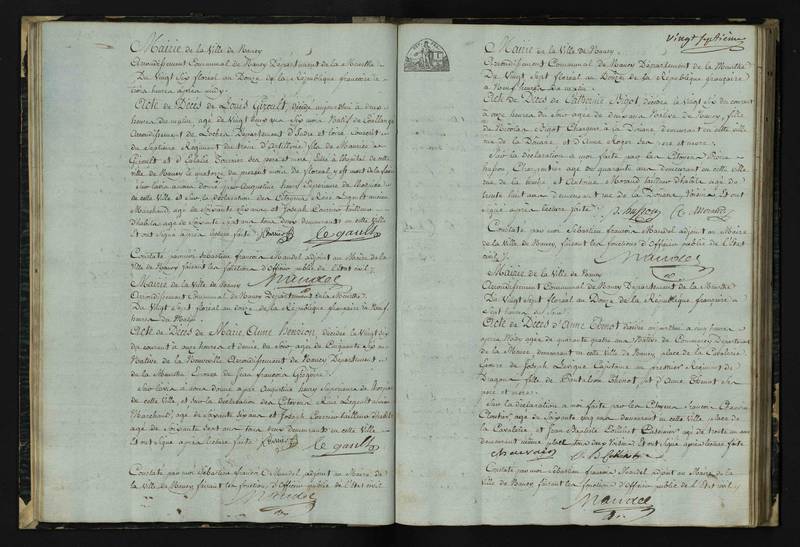 Mairie de la Ville de Nancy
Arrondissement Communal de Nancy Departement de la Meurthe
Du Vingt Six floreal an Douze de la République françoise à
trois heures après midy
Acte de Décès de Louis Girault, décédé aujourd'huy à deux
heures du matin agé de Vingt huit ans Natif de
Arrondissement de Loches Departement d'Indre et Loire, Conscrit
du Septieme Regiment du train d'Artillerie, fils de Maurice
Girault et d'Eulalie ses pere et mere, Entré à l'hopital de cette
ville de Nancy le quatorze du present mois de floreal, y est mort
Sur l'avis à nous donné par Augustine henry Superieure de l'hospice
de cette Ville et Sur la déclaration des Citoyens René Legault
Marchand, agé de Soixante Six ans et Joseph tailleur
d'habits agé de Soixante Sept ans tous deux demeurant en cette Ville
Et ont Signé après lecture faite
le gault
Constaté par moi Sébastien françois Mandel adjoint au Maire de la
Ville de Nancy faisant les fonctions d'Officier public de l'Etat civil
Mandel
Mairie de la Ville de Nancy
Arrondissement Communal de Nancy Departement de la Meurthe
Du Vingt Sept floreal an douze de la République française à Neuf
heures du Matin
Acte de Décès de Marie Anne Henrion, décédée le Vingt Six
du courant à onze heures et demie du Soir agée de Cinquante Six ans
Native de la Neuvelle arrondissement de Nancy Departement
de la Meurthe Epouse de Jean francois Gregoire
Sur l'avis à nous donné par Augustine henry Superieure de l'hospice
de cette Ville et Sur la déclaration des Citoyens René Legault
Marchand, agé de Soixante Six ans et Joseph tailleur d'habits
agé de Soixante Sept ans tous deux demeurant en cette Ville
Et ont Signé après lecture faite
le gault
Constaté par moi Sébastien francois Mandel adjoint au Maire de
la Ville de Nancy faisant les fonctions d'Officier public de l'Etat civil
Mandel
Vingt septième
Mairie de la Ville de Nancy
Arrondissement Communal de Nancy Departement de la Meurthe
Du Vingt Sept floreal an Douze de la République française
à Neuf heures du Matin
Acte de Décès de Catherine Bigot, décédée le Vingt Six du courant
à onze heures du Soir agée de deux ans Native de Nancy, fille
de Nicolas Bigot à la Douane demeurant en cette ville
rue de la Douane, et d'Anne Roger ses pere et mere
Sur la déclaration à moi faite par les Citoyens
Charpentier agé de quarante ans demeurant en cette ville
rue de la et Antoine Morand tailleur d'habits agé de
trente huit ans demeurant rue de la Douane, Voisins Et ont
Signé après lecture faite
Morand
Constaté par moi Sébastien francois Mandel adjoint au Maire
de la Ville de Nancy, faisant les fonctions d'Officier public de l'Etat
civil
Mandel
Mairie de la Ville de Nancy
Arrondissement Communal de Nancy Departement de la Meurthe
Du Vingt Sept floreal an Douze de la République française à
Sept heures du Soir
Acte de Décès d'Anne Thenot décédée aujourd'huy à cinq heures
après Midy agée de quarante quatre ans Native de Commercy Departement
de la Meuse demeurant en cette Ville de Nancy place de la Cavalerie
Epouse de Joseph Levigne Capitaine au premier Regiment de
Dragons, fille de Pantaleon Thenot, et d'Anne Thenot ses
pere et mere
Sur la déclaration à moi faite par les Citoyens francois Chauvin
Cloutier agé de Soixante cinq ans demeurant en cette Ville place de
la Cavalerie et Jean Baptiste agé de trente
demeurant même place tous deux Voisins Et ont Signé après lecture faite
Constaté par moi Sébastien francois Mandel adjoint au Maire de la
Ville de Nancy faisant les fonctions d'Officier public de l'Etat civil
Mandel